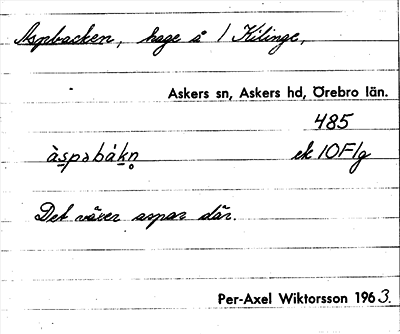 Aspbacken, hage å 1 Kilinge,
Askers sn, Askers hd, Örebro län.
485
àspəbákn̥ ek 10F1g
Det växer aspar där.
Per-Axel Wiktorsson 1963.